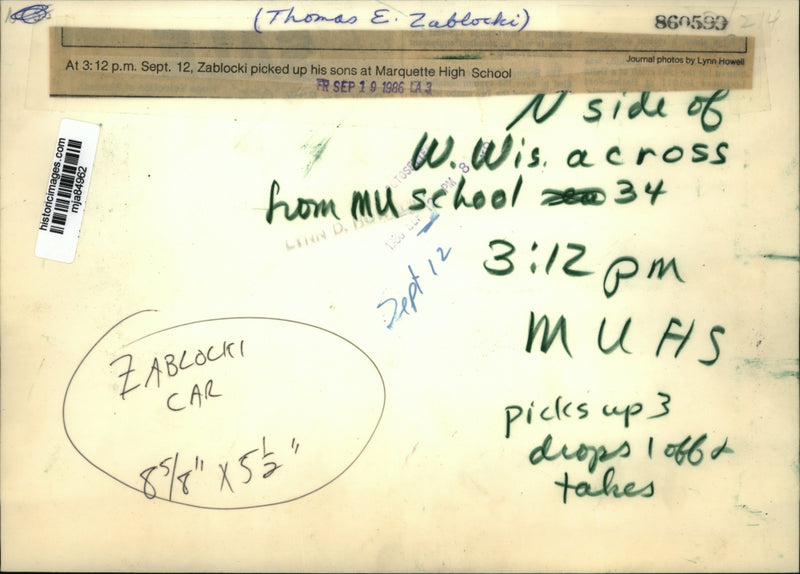 (Thomas E. Zablocki)
860599
214
Journal photos by Lynn Howell
At 3:12 p.m. Sept. 12, Zablocki picked up his sons at Marquette High School
FR SEP 19 1986 LA 3
N side of
W. Wis. across
from MU school 34
historicimages.com
mja84962
LYNN D.
PM 8
1986 SEP
Sept 12
3:12 pm
MUHS
ZABLOCKI
CAR
8 5/8" X 5 1/2"
picks up 3
drops 1 off &
takes